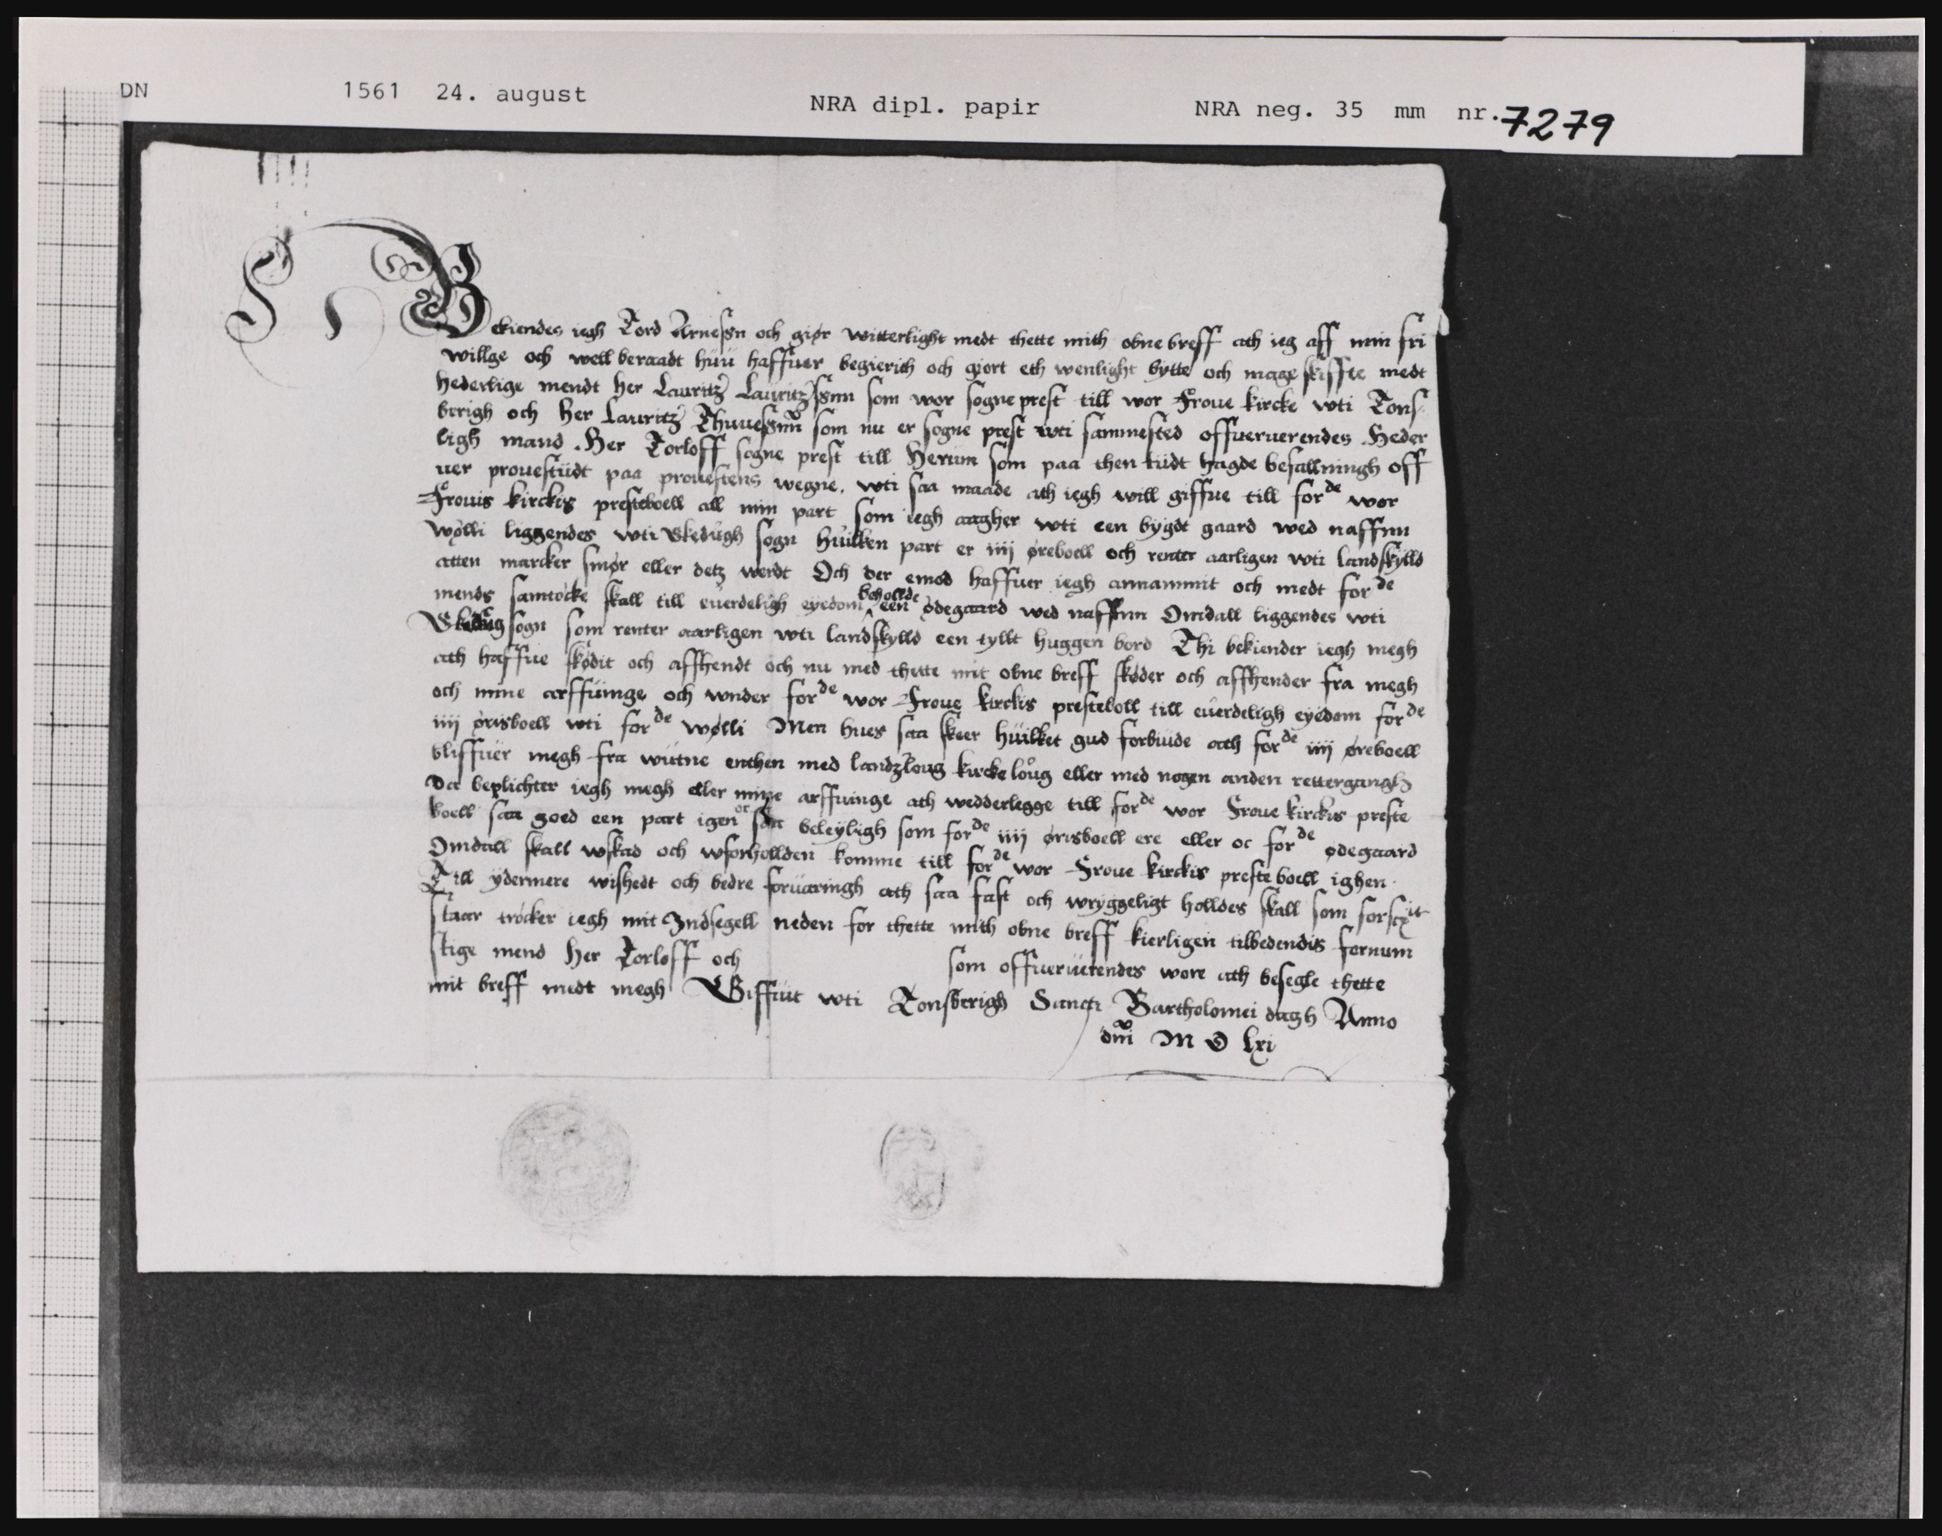 DN 1561 24. august NRA dipl. papir NRA neg. 35 mm nr. 7279
Bekiendes iegh Tord Arnessn och giør witterlight medt thette mith obne breff ath ieg aff min fri
willge och well beraadt hūū haffuer begierich och giort eth wenlight bytte och mageskiffte medt
hederlige mendt her Lauritz Lauritzssnn som wor sogneprest till wor Froue kircke wti Tons
berigh och Her Lauritz Thuuessnn som nu er sogne prest wti sammested offueruerendes Heder
ligh mand. Her Torloff sogne prest till Herum som paa then tiidt hagde befallningh off
uer prouestiidt paa prouestens wegne, wti saa maade ath iegh will giffue till forde wor
Frouis kirckis presteboell all min part som iegh aagher wti een bygdt gaard wed naffnn
wølli liggendes wti Skedugh sogn huilken part er iiij øreboell och renter aarligen wti landskylld
atten marcker smør eller detz werdt Och der emod haffuer iegh annammit och medt forde
mends samtøcke skall till euerdeligh eyedom behollde een ødegaard wed naffnn Omdall liggendes wti
Skedug sogn som renter aarligen wti landskylld een tyllt huggen bord Thi bekiender iegh megh
ath haffue skødit och affhendt och nu med thette mit obne breff skøder och affhender fra megh
och mine arffuinge och wnder forde wor Froue kirckis presteboll till euerdeligh eyedom forde
iiij ørisboell wti forde wølli Men hues saa skeer huilket gud forbiude ath forde iiij øreboell
bliffuer megh fra wiitne enthen med landzloug kirckeloug eller med nogen anden rettergangh
Da beplichter iegh megh eller mine arffuinge ath wedderlegge till forde wor Froue kirckis preste
boell saa goed een part igen oc saa beleyligh som forde iiij ørisboell ere eller oc forde ødegaard
Omdall skall wskad och wforhollden komme till forde wor Froue kirckis presteboell ighen.
Till ydermere wishedt och bedre foruaringh ath saa fast och wryggeligt holldes skall som forscrit
staar trøcker iegh mit Indsegell neden for thette mith obne breff kierligen tilbedendis fornum
stige mend Her Torloff och som offueruerendes wore ath besegle thette
mit breff medt megh Giffuit wti Tonsberigh Sancti Bartholomei dagh Anno
dm̄ M D lxi